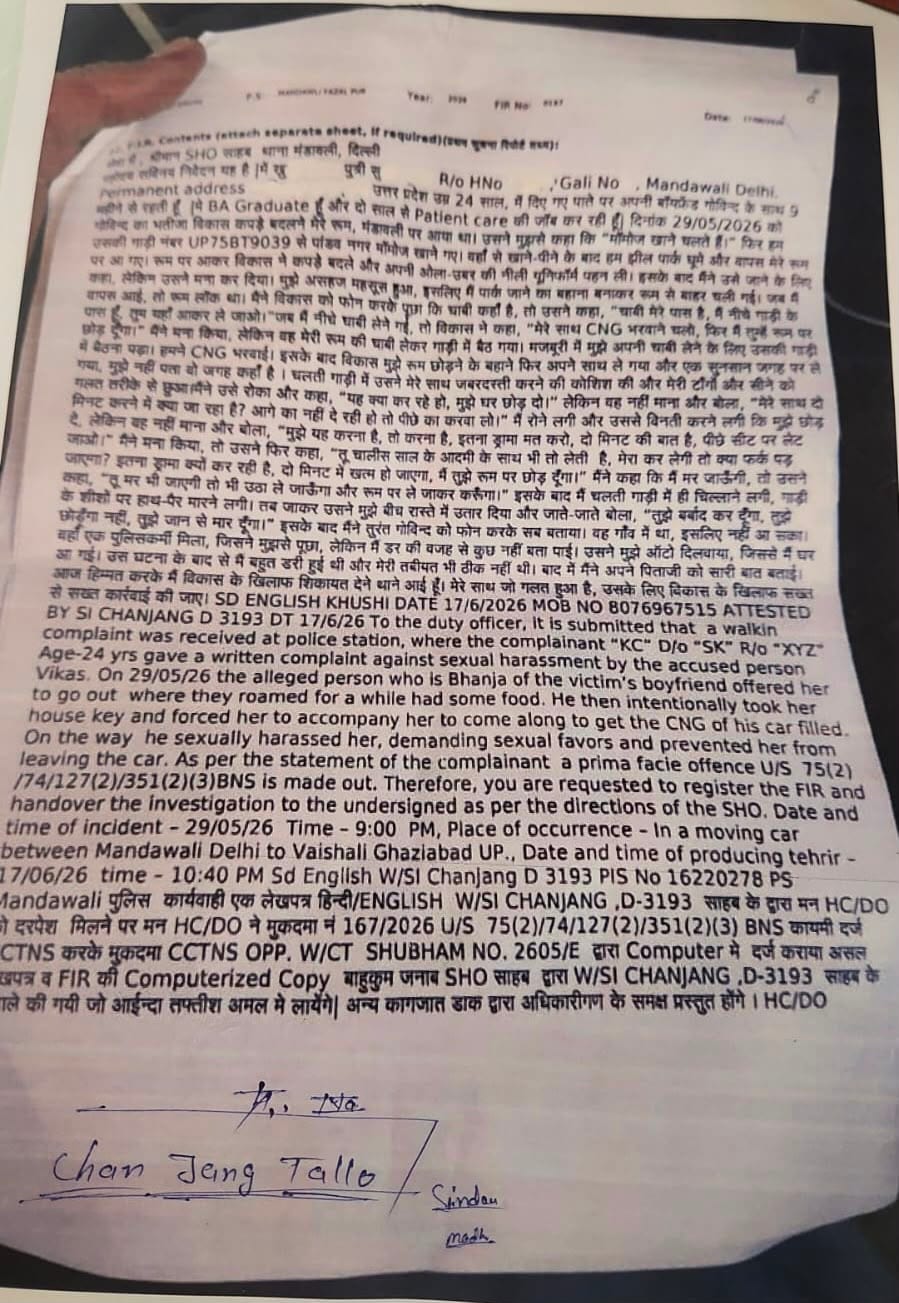 P.S. MANDAWLI FAZAL PUR Year: 2026 FIR No: 0167 Date:
F.I.R. Contents (attach separate sheet, if required)(प्रथम सूचना रिपोर्ट तथ्य):
श्रीमान SHO साहब थाना मंडावली, दिल्ली
सविनय निवेदन यह है |में खु पुत्री सु R/o HNo ,'Gali No , Mandawali Delhi.
Permanent address उत्तर प्रदेश उम्र 24 साल, में दिए गए पाते पर अपनी बॉयफ्रेंड गोविन्द के साथ 9
महीने से रहती हूँ |में BA Graduate हूँ और दो साल से Patient care की जॉब कर रही हूँ| दिनांक 29/05/2026 को
गोविन्द का भतीजा विकास कपड़े बदलने मेरे रूम, मंडावली पर आया था। उसने मुझसे कहा कि "मोंमोज खाने चलते हैं।" फिर हम
उसकी गाड़ी नंबर UP75BT9039 से पांडव नगर मोंमोज खाने गए। वहाँ से खाने-पीने के बाद हम झील पार्क घूमे और वापस मेरे रूम
पर आ गए। रूम पर आकर विकास ने कपड़े बदले और अपनी ओला-उबर की नीली यूनिफॉर्म पहन ली। इसके बाद मैंने उसे जाने के लिए
कहा, लेकिन उसने मना कर दिया। मुझे असहज महसूस हुआ, इसलिए मैं पार्क जाने का बहाना बनाकर रूम से बाहर चली गई। जब मैं
वापस आई, तो रूम लॉक था। मैंने विकास को फोन करके पूछा कि चाबी कहाँ है, तो उसने कहा, "चाबी मेरे पास है, मैं नीचे गाड़ी के
पास हूँ, तुम यहाँ आकर ले जाओ।"जब मैं नीचे चाबी लेने गई, तो विकास ने कहा, "मेरे साथ CNG भरवाने चलो, फिर मैं तुम्हें रूम पर
छोड़ दूँगा।" मैंने मना किया, लेकिन वह मेरी रूम की चाबी लेकर गाड़ी में बैठ गया। मजबूरी में मुझे अपनी चाबी लेने के लिए उसकी गाड़ी
में बैठना पड़ा। हमने CNG भरवाई। इसके बाद विकास मुझे रूम छोड़ने के बहाने फिर अपने साथ ले गया और एक सुनसान जगह पर ले
गया, मुझे नहीं पता वो जगह कहाँ है । चलती गाड़ी में उसने मेरे साथ जबरदस्ती करने की कोशिश की और मेरी टाँगों और सीने को
गलत तरीके से छुआ।मैंने उसे रोका और कहा, "यह क्या कर रहे हो, मुझे घर छोड़ दो।" लेकिन वह नहीं माना और बोला, "मेरे साथ दो
मिनट करने में क्या जा रहा है? आगे का नहीं दे रही हो तो पीछे का करवा लो।" मैं रोने लगी और उससे विनती करने लगी कि मुझे छोड़
दे, लेकिन वह नहीं माना और बोला, "मुझे यह करना है, तो करना है, इतना ड्रामा मत करो, दो मिनट की बात है, पीछे सीट पर लेट
जाओ।" मैंने मना किया, तो उसने फिर कहा, "तू चालीस साल के आदमी के साथ भी तो लेती है, मेरा कर लेगी तो क्या फर्क पड़
जाएगा? इतना ड्रामा क्यों कर रही है, दो मिनट में खत्म हो जाएगा, मैं तुझे रूम पर छोड़ दूँगा।" मैंने कहा कि मैं मर जाऊँगी, तो उसने
कहा, "तू मर भी जाएगी तो भी उठा ले जाऊँगा और रूम पर ले जाकर करूँगा।" इसके बाद मैं चलती गाड़ी में ही चिल्लाने लगी, गाड़ी
के शीशों पर हाथ-पैर मारने लगी। तब जाकर उसने मुझे बीच रास्ते में उतार दिया और जाते-जाते बोला, "तुझे बर्बाद कर दूँगा, तुझे
छोड़ूँगा नहीं, तुझे जान से मार दूँगा।" इसके बाद मैंने तुरंत गोविन्द को फोन करके सब बताया। वह गाँव में था, इसलिए नहीं आ सका।
वहाँ एक पुलिसकर्मी मिला, जिसने मुझसे पूछा, लेकिन मैं डर की वजह से कुछ नहीं बता पाई। उसने मुझे ऑटो दिलवाया, जिससे मैं घर
आ गई। उस घटना के बाद से मैं बहुत डरी हुई थी और मेरी तबीयत भी ठीक नहीं थी। बाद में मैंने अपने पिताजी को सारी बात बताई।
आज हिम्मत करके मैं विकास के खिलाफ शिकायत देने थाने आई हूँ। मेरे साथ जो गलत हुआ है, उसके लिए विकास के खिलाफ सख्त
से सख्त कार्रवाई की जाए। SD ENGLISH KHUSHI DATE 17/6/2026 MOB NO 8076967515 ATTESTED
BY SI CHANJANG D 3193 DT 17/6/26 To the duty officer, It is submitted that a walkin
complaint was received at police station, where the complainant "KC" D/o "SK" R/o "XYZ"
Age-24 yrs gave a written complaint against sexual harassment by the accused person
Vikas. On 29/05/26 the alleged person who is Bhanja of the victim's boyfriend offered her
to go out where they roamed for a while had some food. He then intentionally took her
house key and forced her to accompany her to come along to get the CNG of his car filled.
On the way he sexually harassed her, demanding sexual favors and prevented her from
leaving the car. As per the statement of the complainant a prima facie offence U/S 75(2)
/74/127(2)/351(2)(3)BNS is made out. Therefore, you are requested to register the FIR and
handover the investigation to the undersigned as per the directions of the SHO. Date and
time of incident – 29/05/26 Time – 9:00 PM, Place of occurrence – In a moving car
between Mandawali Delhi to Vaishali Ghaziabad UP., Date and time of producing tehrir –
17/06/26 time – 10:40 PM Sd English W/SI Chanjang D 3193 PIS No 16220278 PS
Mandawali पुलिस कार्यवाही एक लेखपत्र हिन्दी/ENGLISH W/SI CHANJANG ,D-3193 साहब के द्वारा मन HC/DO
दरपेश मिलने पर मन HC/DO ने मुकदमा नं 167/2026 U/S 75(2)/74/127(2)/351(2)(3) BNS कायमी दर्ज
CTNS करके मुकदमा CCTNS OPP. W/CT SHUBHAM NO. 2605/E द्वारा Computer मे दर्ज कराया असल
व FIR की Computerized Copy बाहुकुम जनाब SHO साहब द्वारा W/SI CHANJANG ,D-3193 साहब के
की गयी जो आईन्दा तफ्तीश अमल मे लायेंगे| अन्य कागजात डाक द्वारा अधिकारीगण के समक्ष प्रस्तुत होंगे । HC/DO
Chan Jang Tallo